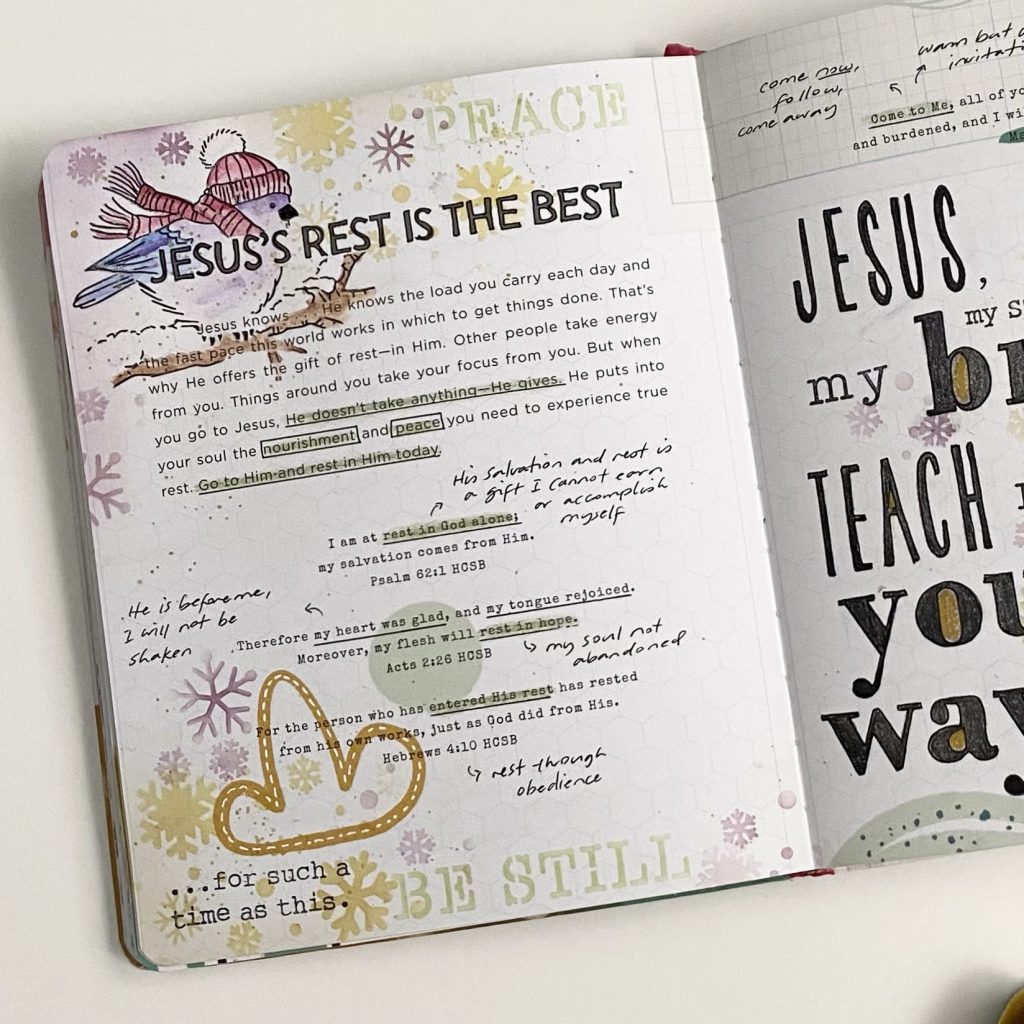 PEACE
JESUS'S REST IS THE BEST
Jesus knows . . . He knows the load you carry each day and
the fast pace this world works in which to get things done. That's
why He offers the gift of rest—in Him. Other people take energy
from you. Things around you take your focus from you. But when
you go to Jesus, He doesn't take anything—He gives. He puts into
your soul the nourishment and peace you need to experience true
rest. Go to Him and rest in Him today.
His salvation and rest is
a gift I cannot earn
or accomplish
myself
I am at rest in God alone;
my salvation comes from Him.
Psalm 62:1 HCSB
He is before me,
I will not be
shaken
Therefore my heart was glad, and my tongue rejoiced.
Moreover, my flesh will rest in hope.
Acts 2:26 HCSB
my soul not
abandoned
For the person who has entered His rest has rested
from his own works, just as God did from His.
Hebrews 4:10 HCSB
rest through
obedience
...for such a
time as this.
BE STILL
come now,
follow,
come away
warm but
Come to Me, all of
and burdened, and I
JESUS,
my
my
TEACH
way